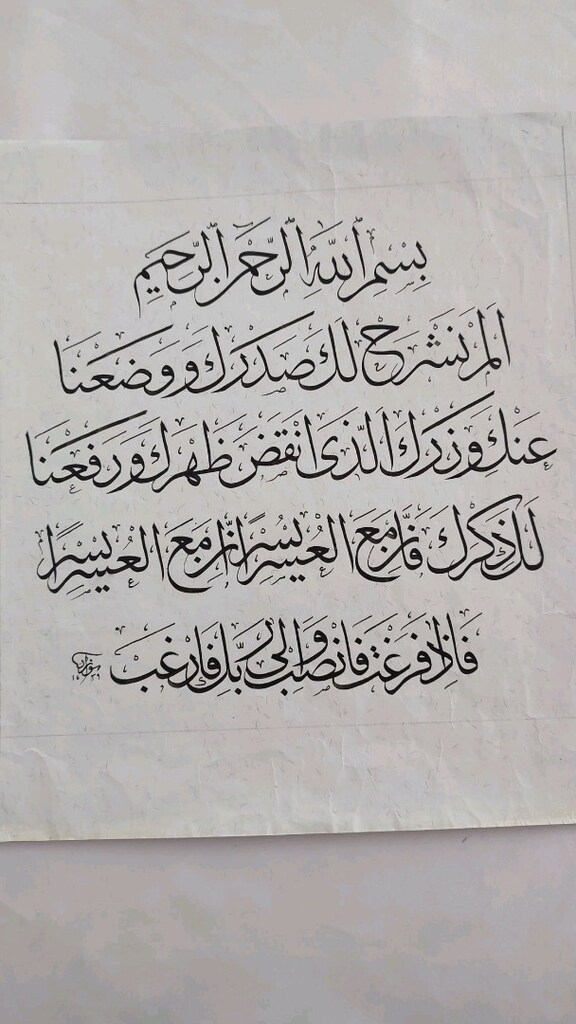 بِسْمِ ٱللَّهِ ٱلرَّحْمَٰنِ ٱلرَّحِيمِ
اَلَمْ نَشْرَحْ لَكَ صَدْرَكَ وَ وَضَعْنَا
عَنْكَ وِزْرَكَ الَّذى اَنْقَضَ ظَهْرَكَ وَ رَفَعْنَا
لَكَ ذِكْرَكَ فَاِنَّ مَعَ الْعُسْرِ يُسْرًا اِنَّ مَعَ الْعُسْرِ يُسْرًا
فَاِذَا فَرَغْتَ فَانْصَبْ وَ اِلى رَبِّكَ فَارْغَبْ